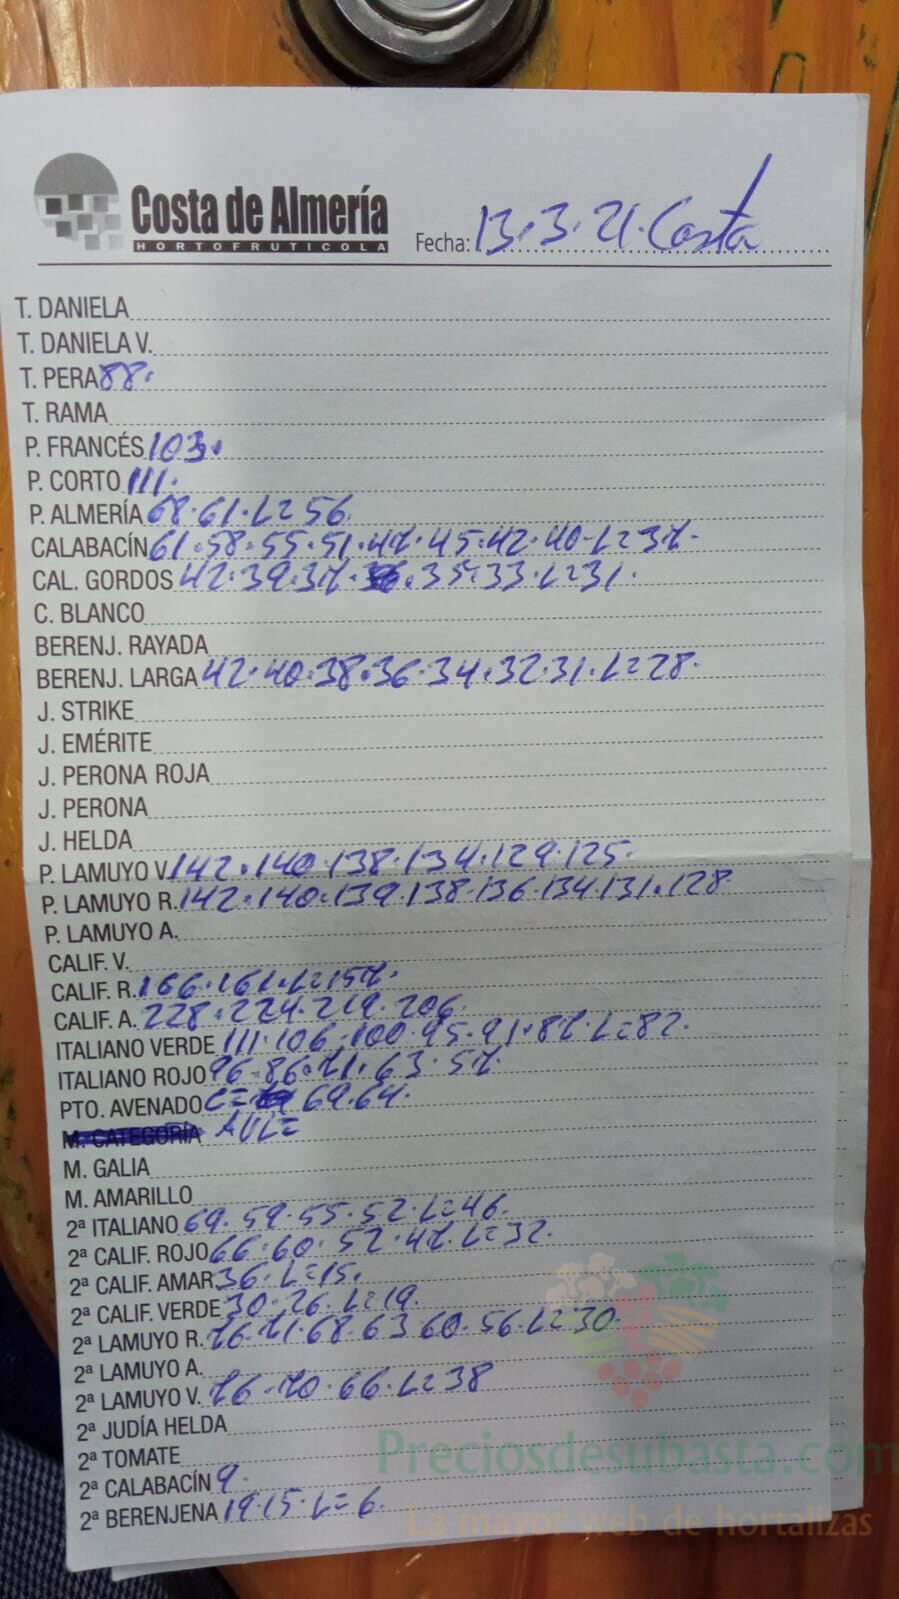 Costa de Almería
HORTOFRUTICOLA
Fecha: 13.3.21. Costa
T. DANIELA
T. DANIELA V.
T. PERA 88.
T. RAMA
P. FRANCÉS 103.
P. CORTO 111.
P. ALMERÍA 68.61.L=56
CALABACÍN 61.58.55.51.47.45.42.40.L=37.
CAL. GORDOS 42.39.37.36.35.33.L=31.
C. BLANCO
BERENJ. RAYADA
BERENJ. LARGA 42.40.38.36.34.32.31.L=28.
J. STRIKE
J. EMÉRITE
J. PERONA ROJA
J. PERONA
J. HELDA
P. LAMUYO V. 142.140.138.134.129.125.
P. LAMUYO R. 142.140.139.138.136.134.131.128
P. LAMUYO A.
CALIF. V.
CALIF. R. 166.161.L=157.
CALIF. A. 228.224.219.206.
ITALIANO VERDE 111.106.100.95.91.87.L=82.
ITALIANO ROJO 96.86.71.63.57
PTO. AVENADO C= 69.64.
M. CATEGORÍA AVL=
M. GALIA
M. AMARILLO
2ª ITALIANO 69.59.55.52.L=46.
2ª CALIF. ROJO 66.60.52.47.L=32.
2ª CALIF. AMAR. 36.L=15.
2ª CALIF. VERDE 30.26.L=19.
2ª LAMUYO R. 76.71.68.63 60.56.L=30.
2ª LAMUYO A.
2ª LAMUYO V. 76.70.66.L=38
2ª JUDÍA HELDA
2ª TOMATE
2ª CALABACÍN 9.
2ª BERENJENA 19.15.L=6.
Preciosdesubasta.com
La mayor web de hortalizas